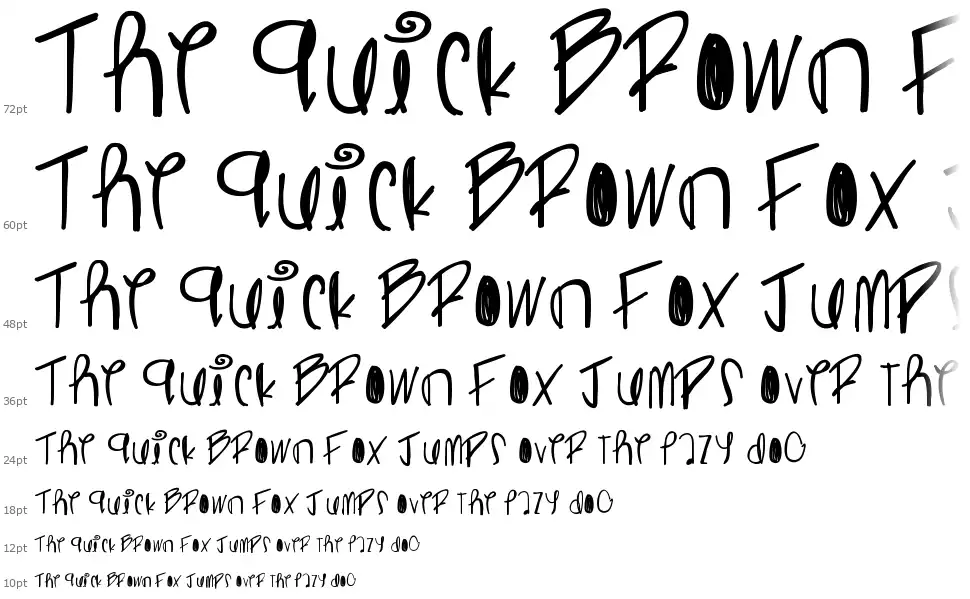 72pt The quick Brown F
60pt The quick Brown Fox J
48pt The quick Brown Fox Jumps
36pt The quick Brown Fox Jumps over the
24pt The quick Brown Fox Jumps over the lazy dog
18pt The quick Brown Fox Jumps over the lazy dog
12pt The quick Brown Fox Jumps over the lazy dog
10pt The quick Brown Fox Jumps over the lazy dog